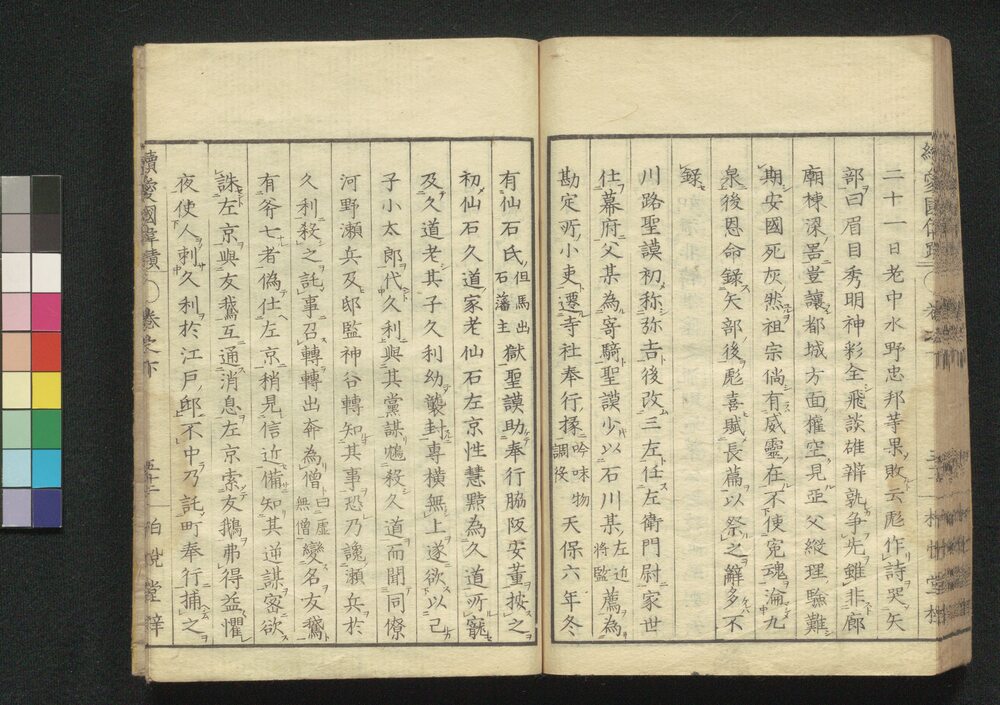 二十一日老中水野忠邦等果敗云彪作詩哭矢
部曰眉目秀明神彩全飛談雄辯孰争先雖非廊
廟棟深噐豈讓都城方面權空見亞父縱理驗難
期安國死灰然祖宗倘有威靈在不使寃魂淪九
泉後恩命録矢部後彪喜賦長篇以祭之辭多不
録
川路聖謨初称弥吉後改三左任左衛門尉家世
仕幕府父某為寄騎聖謨少以石川某左近将監薦為
勘定所小吏遷寺社奉行掾吟味物調役天保六年冬
有仙石氏但馬出石藩主獄聖謨助奉行脇阪安董按之
初仙石久道家老仙石左京性慧黠為久道所寵
及久道老其子久利幼襲封專横無上遂欲以己
子小太郎代久利與其黨謀鴆殺久道而聞同僚
河野瀬兵及邸監神谷轉知其事恐乃讒瀬兵於
久利殺之託事召轉轉出奔為僧曰虚無僧變名友鵞
有斧七者偽仕左京稍見信近備知其逆謀密欲
誅左京與友鵞互通消息左京索友鵝弗得益懼
夜使人刺久利於江戸邸不中乃託町奉行捕之
續愛國偉績
卷之下
五十二
柏悦堂梓